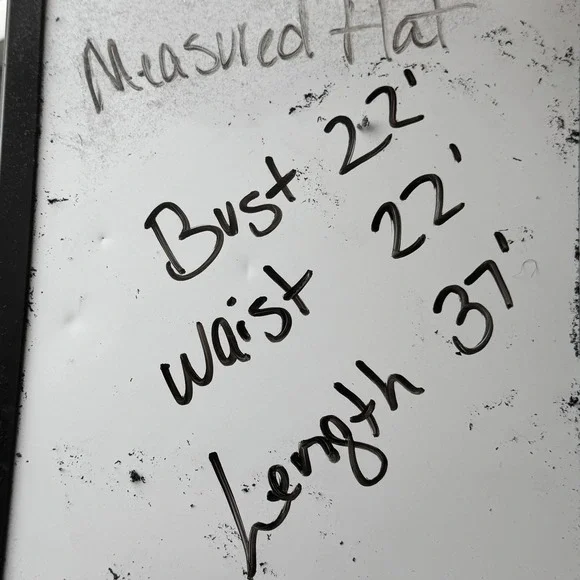 Measured flat
Bust 22'
Waist 22'
Length 37'